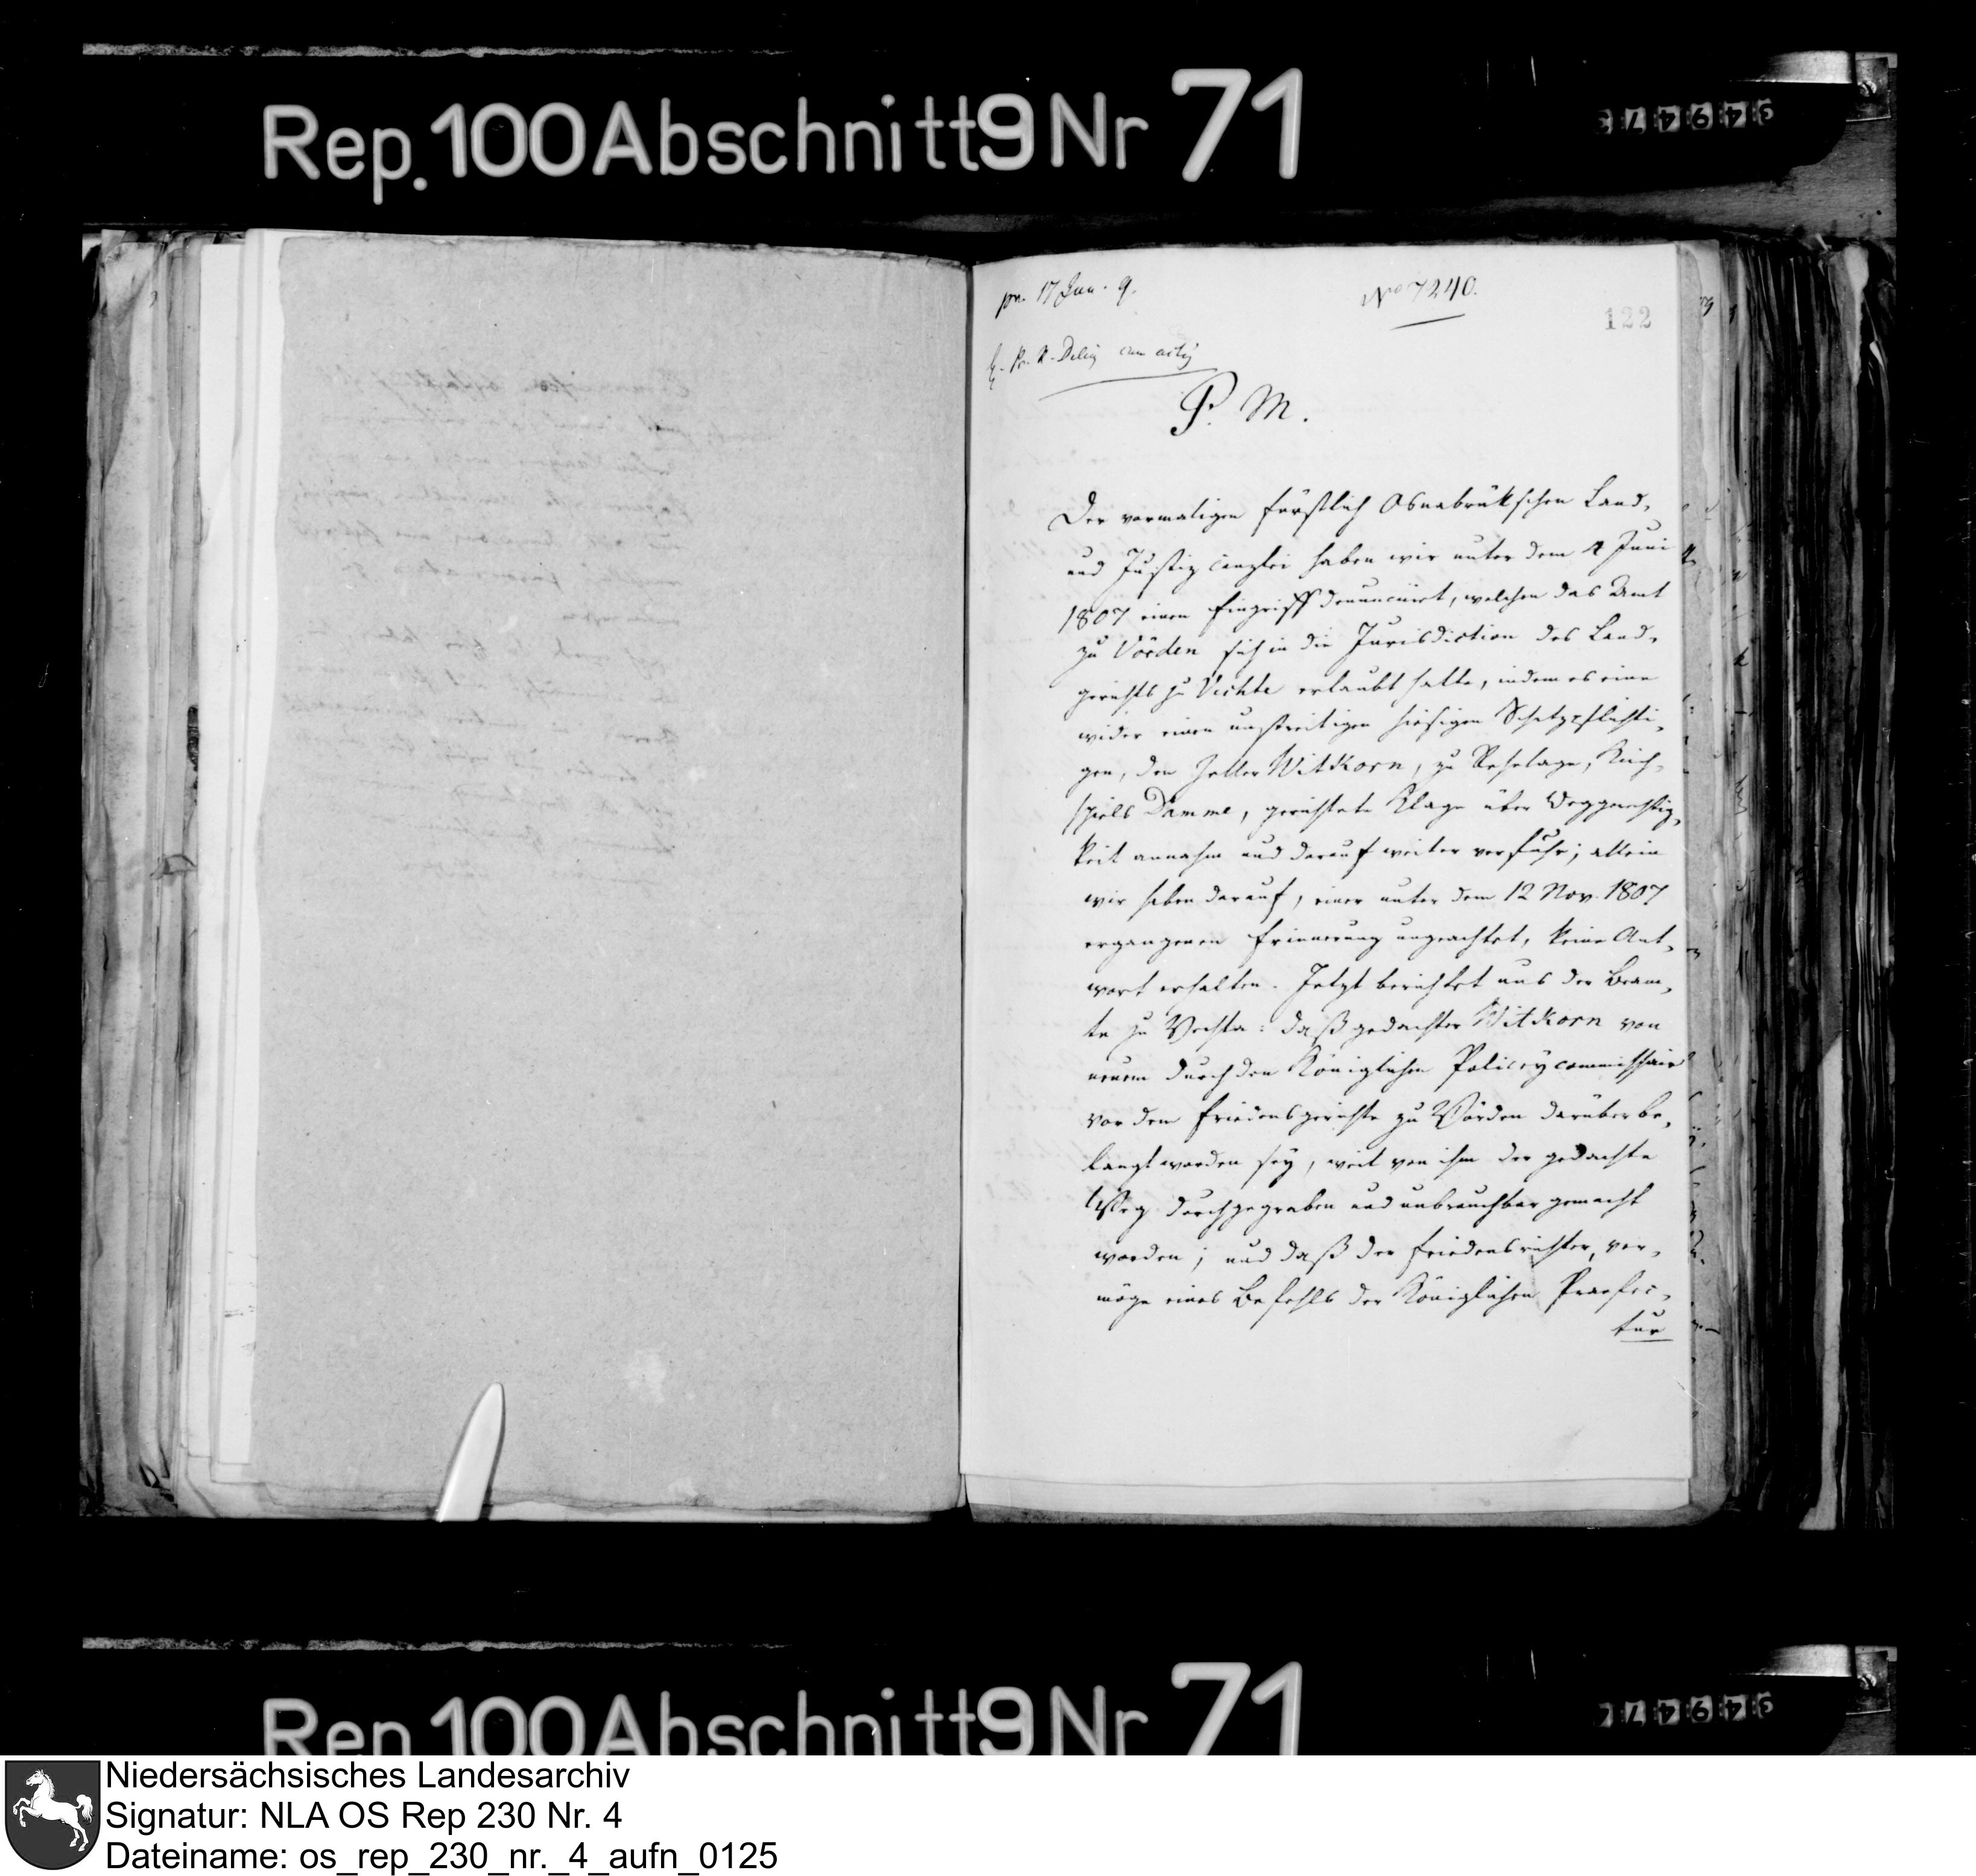 Rep. 100 Abschnitt 9 Nr 71
pr. 17 Jan. 9.
No 7240.
122
cum actis
P. M.
Der vormaligen fürstlich Osnabrükschen Land-
und Justizcanzlei haben wir unter dem 4 Juni
1807 einen Eingriff denunciirt, welchen das Amt
zu Vörden sich in die Jurisdiction des Land-
gerichts zu Vechte erlaubt hatte, indem es eine
wider einen unstreitigen hiesigen Schatzpflichti-
gen, den Zeller Witkorn, zu Reselage, Kirch-
spiels Damme, gerichtete Klage über Weggerechtig-
keit annahm und darauf weiter verfuhr; allein
wir haben darauf, einer unter dem 12 Nov. 1807
ergangenen Erinnerung ungeachtet, keine Ant-
wort erhalten. Jetzt berichtet uns der Beam-
te zu Vechta: daß gedachter Witkorn von
neuem durch den Königlichen Policeycommissair
vor dem Friedensgerichte zu Vörden darüber be-
langt worden sey, weil von ihm der gedachte
Weg durchgegraben und unbrauchbar gemacht
worden; und daß der Friedensrichter, ver-
möge eines Befehls der Königlichen Praefec-
tur
Rep. 100 Abschnitt 9 Nr 71
Niedersächsisches Landesarchiv
Signatur: NLA OS Rep 230 Nr. 4
Dateiname: os_rep_230_nr._4_aufn_0125